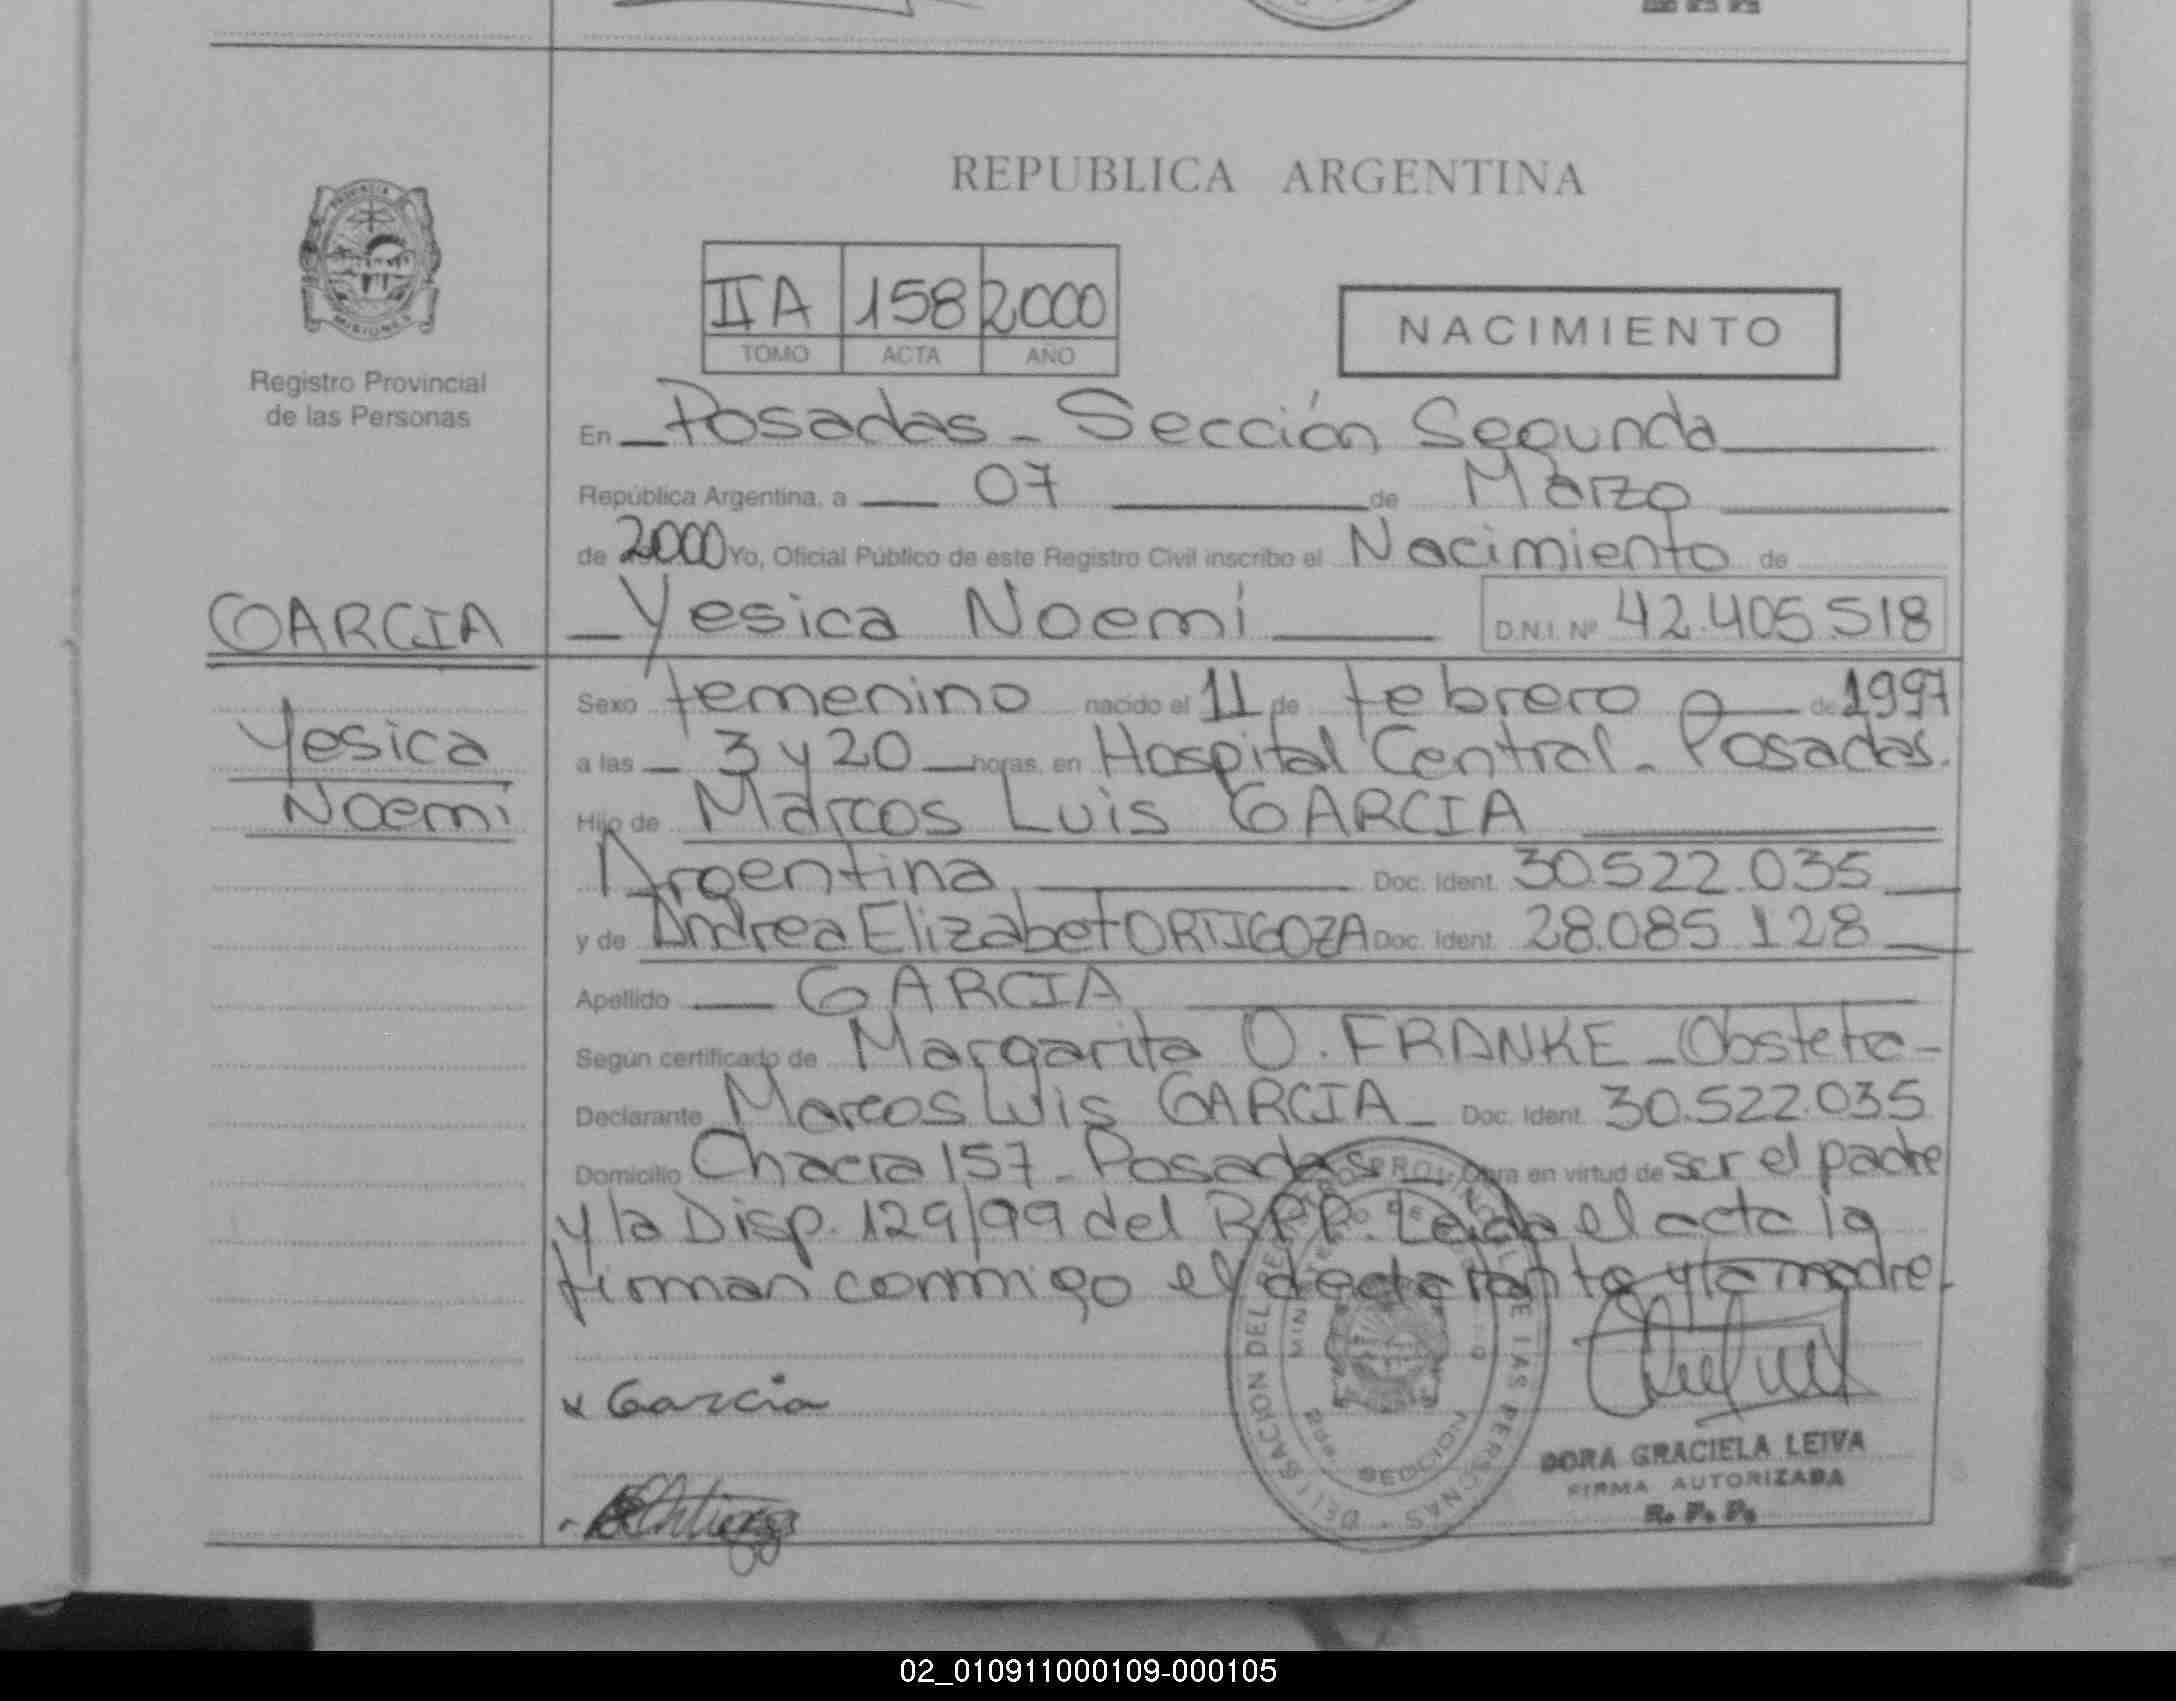 REPUBLICA ARGENTINA
PROVINCIA
MISIONES
Registro Provincial
de las Personas
IIA 158 2000
TOMO ACTA AÑO
NACIMIENTO
En Posadas - Sección Segunda
República Argentina, a 07 de Marzo
de 2000 Yo, Oficial Público de este Registro Civil inscribo el Nacimiento de
GARCIA
Yesica Noemí D.N.I. Nº 42.405.518
Yesica
Noemí
Sexo femenino nacido el 11 de febrero de 1997
a las 3 y 20 horas, en Hospital Central - Posadas.
Hijo de Marcos Luis GARCIA
Argentina Doc. Ident. 30.522.035
y de Andrea Elizabet ORTIGOZA Doc. Ident. 28.085.128
Apellido GARCIA
Según certificado de Margarita O. FRANKE - Obstetra -
Declarante Marcos Luis GARCIA - Doc. Ident. 30.522.035
Domicilio Chacra 157 - Posadas - Obra en virtud de ser el padre
y la Disp. 129/99 del R.P.P. Leida el acta la
firman conmigo el declarante y la madre.
x Garcia
DORA GRACIELA LEIVA
FIRMA AUTORIZADA
R. P. P.
02_010911000109-000105